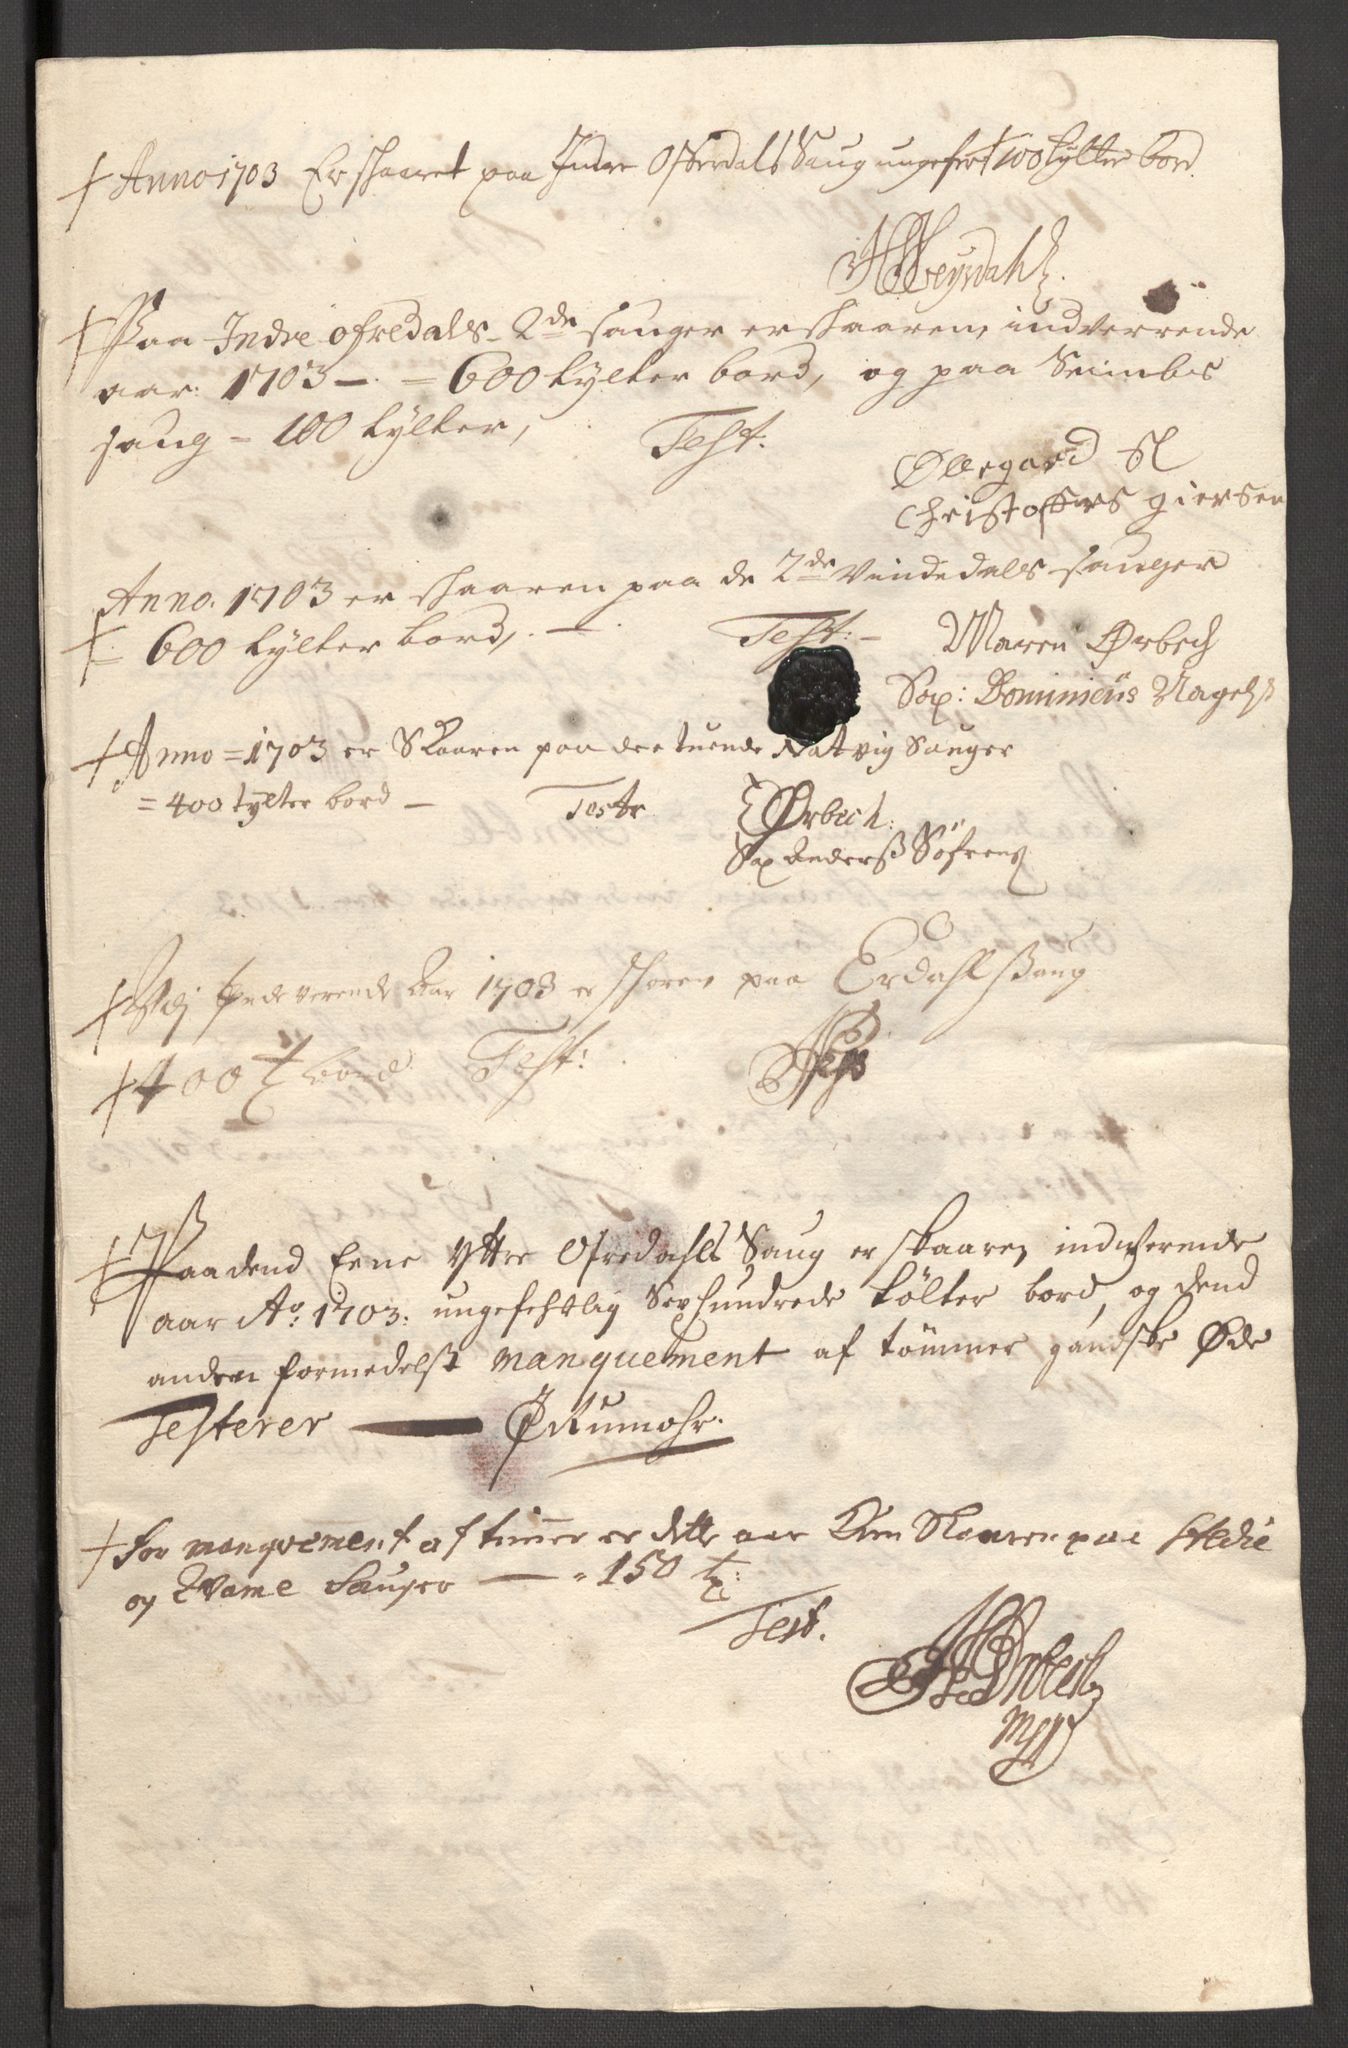 Anno 1703 Er skaaret paa Indre Offerdals Saug ungefer 100 tylter bord.
HHeyrdahl
Paa Indre ofredals 2de sauger er skaaren, indverrende
aar: 1703 —. = 600 tylter bord, og paa Seimbs
saug = 100 tylter, Test:
Ollegaard Sl
Christoffers giersen
Anno. 1703 er skaaren paa de 2de Vindedals sauger
= 600 tylter bord, . — Test: — Maren Ørbech
Sap: Dominicus Nagelß
Anno = 1703 er Skaaren paa dee tuende Natvig Sauger
= 400 tylter bord — Teste Ørbech:
Sap Anderß Söfrens
Udj inde verende Aar 1703 er schoren paa Erdahlssaug
400 t bord Test:
Paa dend Eene Yttre Ofredahls Saug er skaaren indverende
aar Ao: 1703: ungefehrlig Sexhundrede tölter bord, og dend
anden formedelst manquement af tömmer gandske Øde
Testerer — ØRumohr.
for manqvement af timer er dette aar Kun Skaaren paa Stedie
og Qvame Sauger — = 150 t:
Test.
Ørbech
Mpp